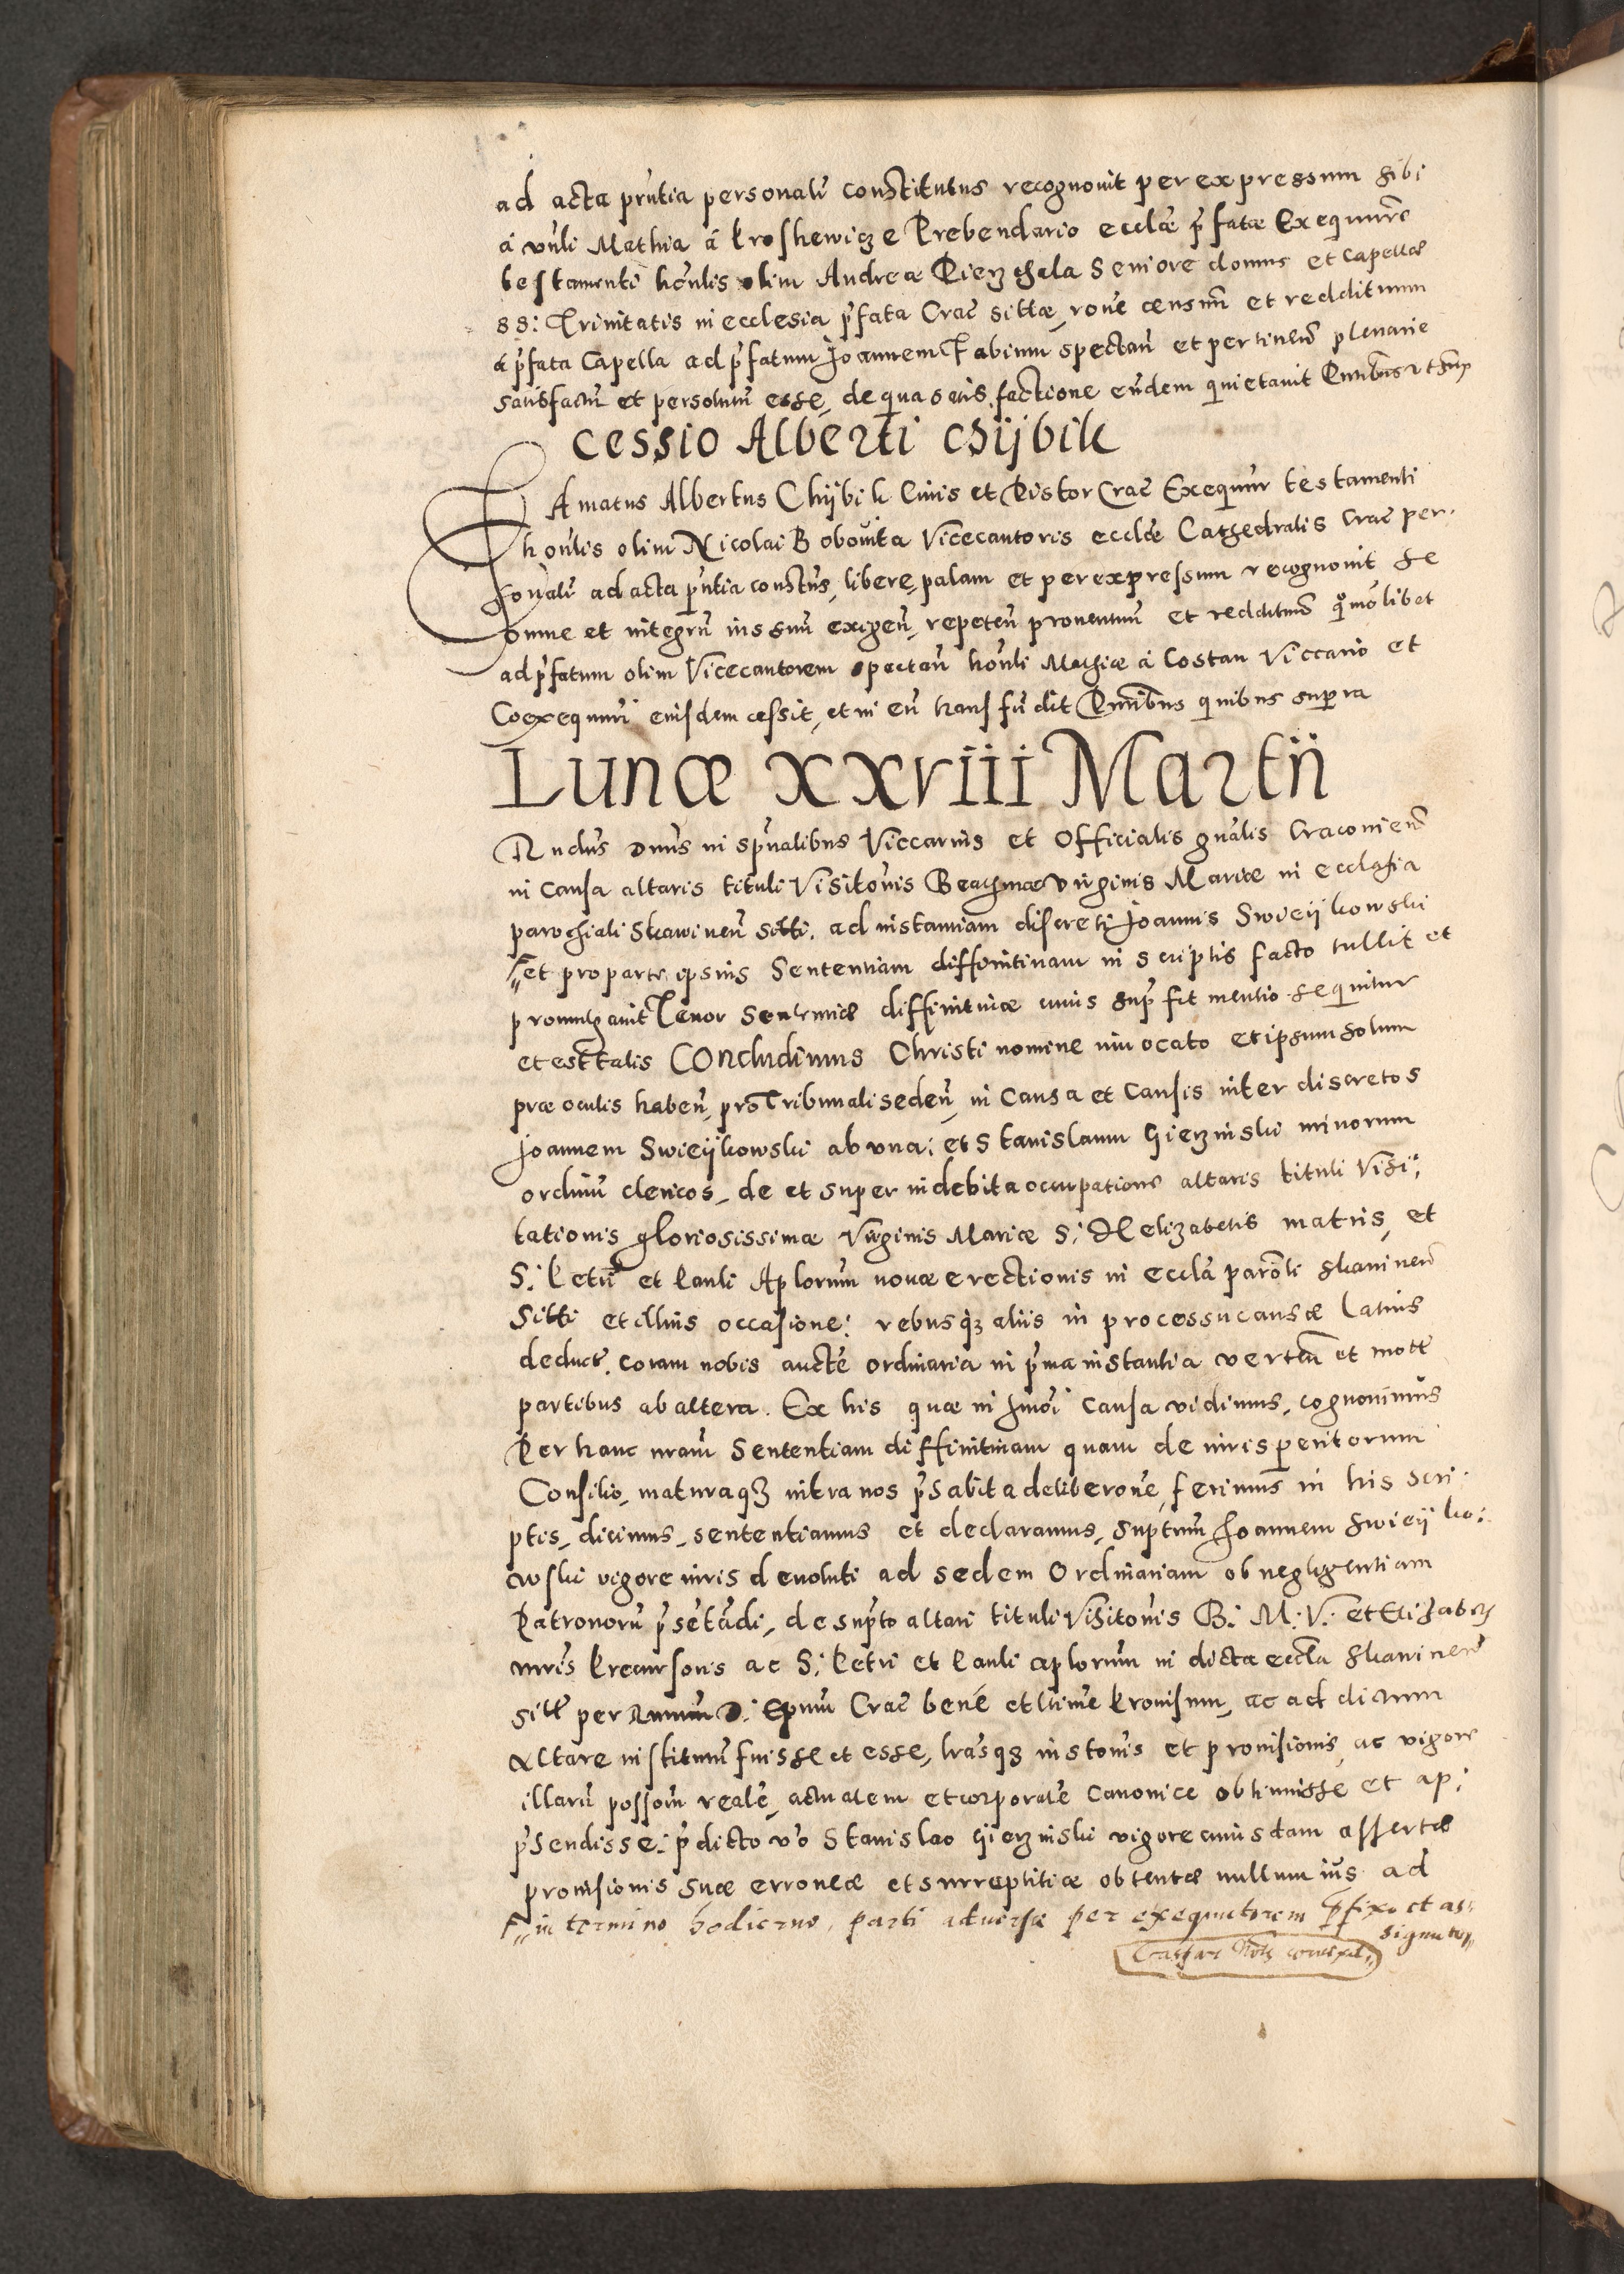 ad acta pr̃ntia personalr̃ constitutus recognovit per expressum sibi
à vñli Mathia à Kroskewicze Prebendario ecclæ p̃fatæ Exequutore
testamenti hoñlis olim Andreæ Pierzchala Seniore domus et capellæ
SS: Trinitatis in ecclesia p̃fata Crac̃ sittæ, roñe censuum et reddituum
à p̃fata Capella ad p̃fatum Joannem Fabinum spectañ et pertineñ plenarie
satisfactũ et persolutũ esse, de qua satisfactione eũdem quietavit Pñtibus ut sup̃
Cessio Alberti Chÿbik
Famatus Albertus Chÿbik Civis et Pistor Crac̃ Exequutor testamenti
hoñlis olim Nicolai Bobovita Vicecantoris ecclæ Cathedralis Crac̃ per-
sonalr̃ ad acta pñtia constus, libere, palam et per expressum recognovit se
omne et integrũ ius suũ exigeñ, repeteñ proventuũ et reddituũ quõmõlibet
ad p̃fatum olim Vicecantorem spectañ hoñli Mathiæ à Costan Viccario et
Coexequutori eiusdem cessit, et in eũ transfudit Pñtibus quibus supra
Lunæ xxviii Martii
Rñdus Dnus in spũalibus Viccarius et Officialis gñalis Cracovieñ
in causa altaris tituli Visitoñis Beatissimæ Virginis Mariæ in ecclesia
parochiali Skawineñ Sitti. ad instantiam discreti Joannis Swieÿkowski
et pro parte ipsius Sententiam diffinitivam in scriptis facto tullit et
promulgavit Tenor Sententiæ diffinitivæ cuius sup̃ fit mentio sequitur
et est talis Concludimus Christi nomine invocato et ipsum solum
præ oculis habeñ, pro Tribunali sedeñ, in Causa et Causis inter discretos
Joannem Swieÿkowski ab una: et Stanislaum Gierzinski minorum
ordinũ clericos, de et super indebita occupatione altaris tituli Visi:
tationis gloriosissimæ Virginis Mariæ S: Helizabetis matris, et
S: Petri et Pauli Aplorum novæ erectionis in eccla parõli Skavineñ
Sitti et illius occasione: rebusq; aliis in processu causæ latius
deduct̃. coram nobis aucte ordinaria in p̃ma instantia verteñ et mott̃
partibus ab altera. Ex his quæ in hmõi causa vidimus, cognovimus
Per hanc nr̃am Sententiam diffinitivam quam de iurisperitorum
Consilio, maturaq; intra nos p̃habita deliberoñe, ferimus in his scri-
ptis, dicimus, sententiamus et declaramus, suptum Joannem Swieÿko:
wski vigore iuris devoluti ad sedem Ordinariam ob negligentiam
Patronorũ p̃sentãdi, de sup̃to altari tituli Visitoñis B: M: V: et Elizabeth
mr̃is Precursoris ac S: Petri et Pauli aplorum in dicta eccla Skavineñ
sitt̃ per Rmum D: Epum Crac̃ bene et ltime Provisum, ac ad dictum
Altare institutum fuisse et esse, lr̃asq; instoñis et provisionis, ac vigore
illarũ possoñ realẽ, actualem et corporalẽ canonice obtinuisse et ap:
p̃hendisse: p̃dicto vo Stanislao Gierzinski vigore cuiusdam assertæ
provisionis suæ erroneæ et surreptitiæ obtentæ nullum ius ad
in termino hodierno, parti adversæ per exequutorem p̃fixo et as:
signato